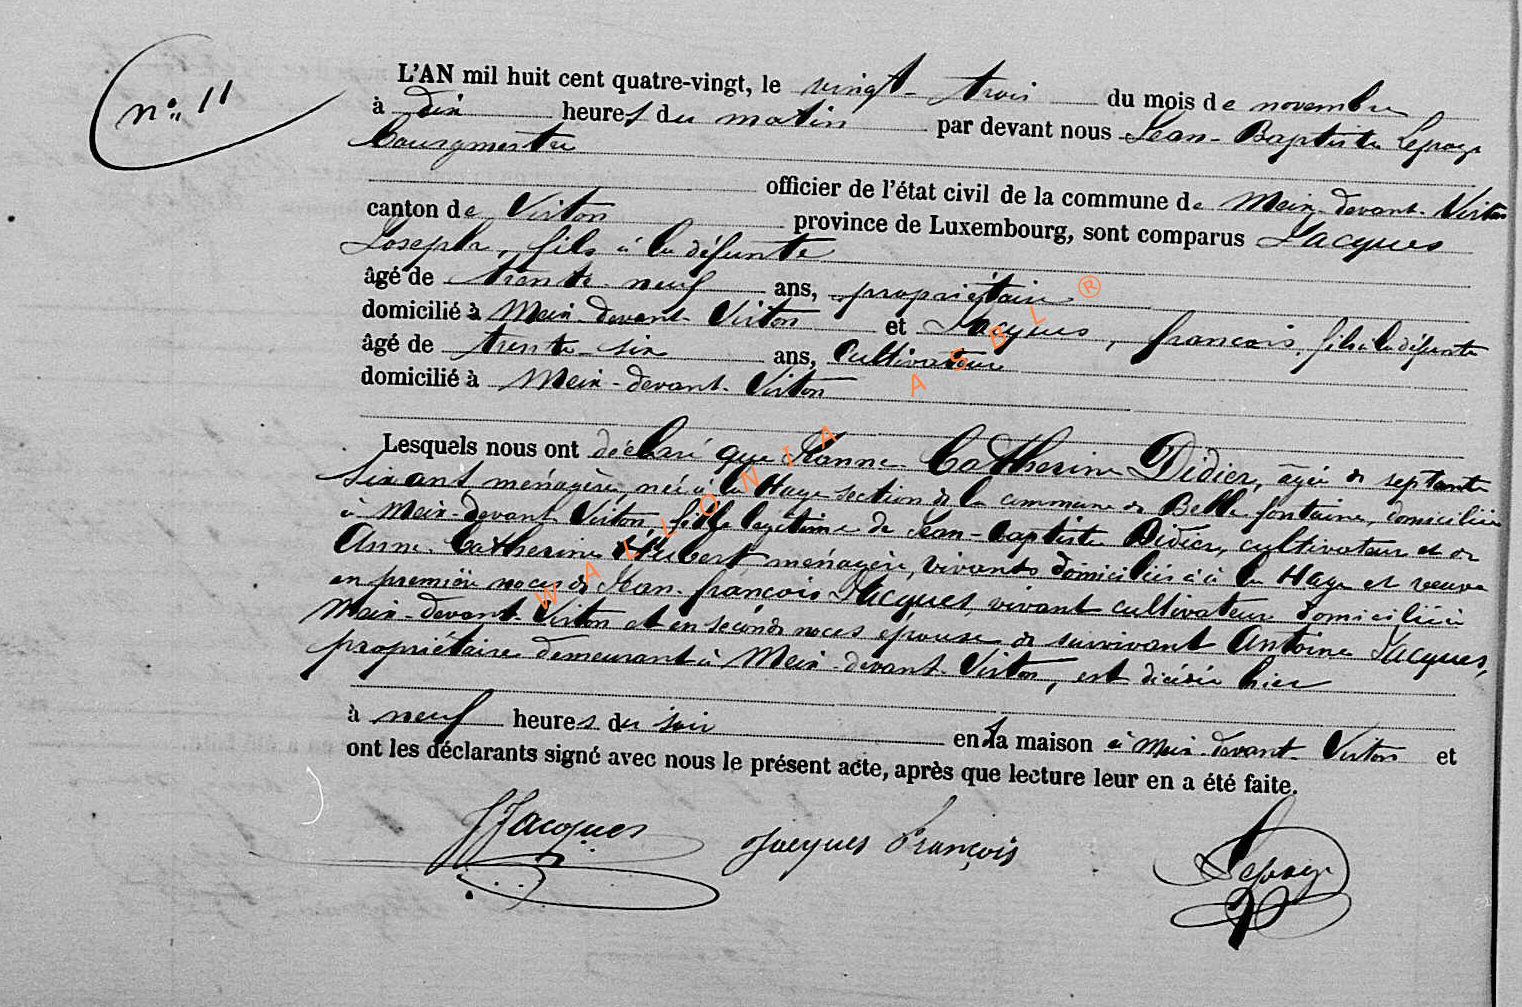 n° 11
L'AN mil huit cent quatre-vingt, le vingt-trois du mois de novembre
à dix heures du matin par devant nous Jean-Baptiste Lepage
bourgmestre
officier de l'état civil de la commune de Meix-devant-Virton
canton de Virton province de Luxembourg, sont comparus Jacques
Joseph, fils à la défunte
âgé de trente-neuf ans, propriétaire
domicilié à Meix-devant-Virton et Jacques, françois, fils à la défunte
âgé de trente-six ans, Cultivateur
domicilié à Meix-devant-Virton
Lesquels nous ont déclaré que Jeanne-Catherine Didier, âgée de septante
six ans ménagère, née à la Hage section de la commune de Bellefontaine, domiciliée
à Meix-devant-Virton, fille légitime de Jean-baptiste Didier, cultivateur et de
Anne-Catherine Hubert ménagère, vivants domiciliés à la Hage et veuve
en première noces de Jean-françois Jacques vivant cultivateur domicilié à
Meix-devant-Virton et en seconde noces épouse de survivant Antoine Jacques,
propriétaire demeurant à Meix-devant-Virton, est décédée hier
à neuf heures du soir en sa maison à Meix-devant-Virton et
ont les déclarants signé avec nous le présent acte, après que lecture leur en a été faite.
JJacques Jacques François Lepage
WALLONIA ASBL ®